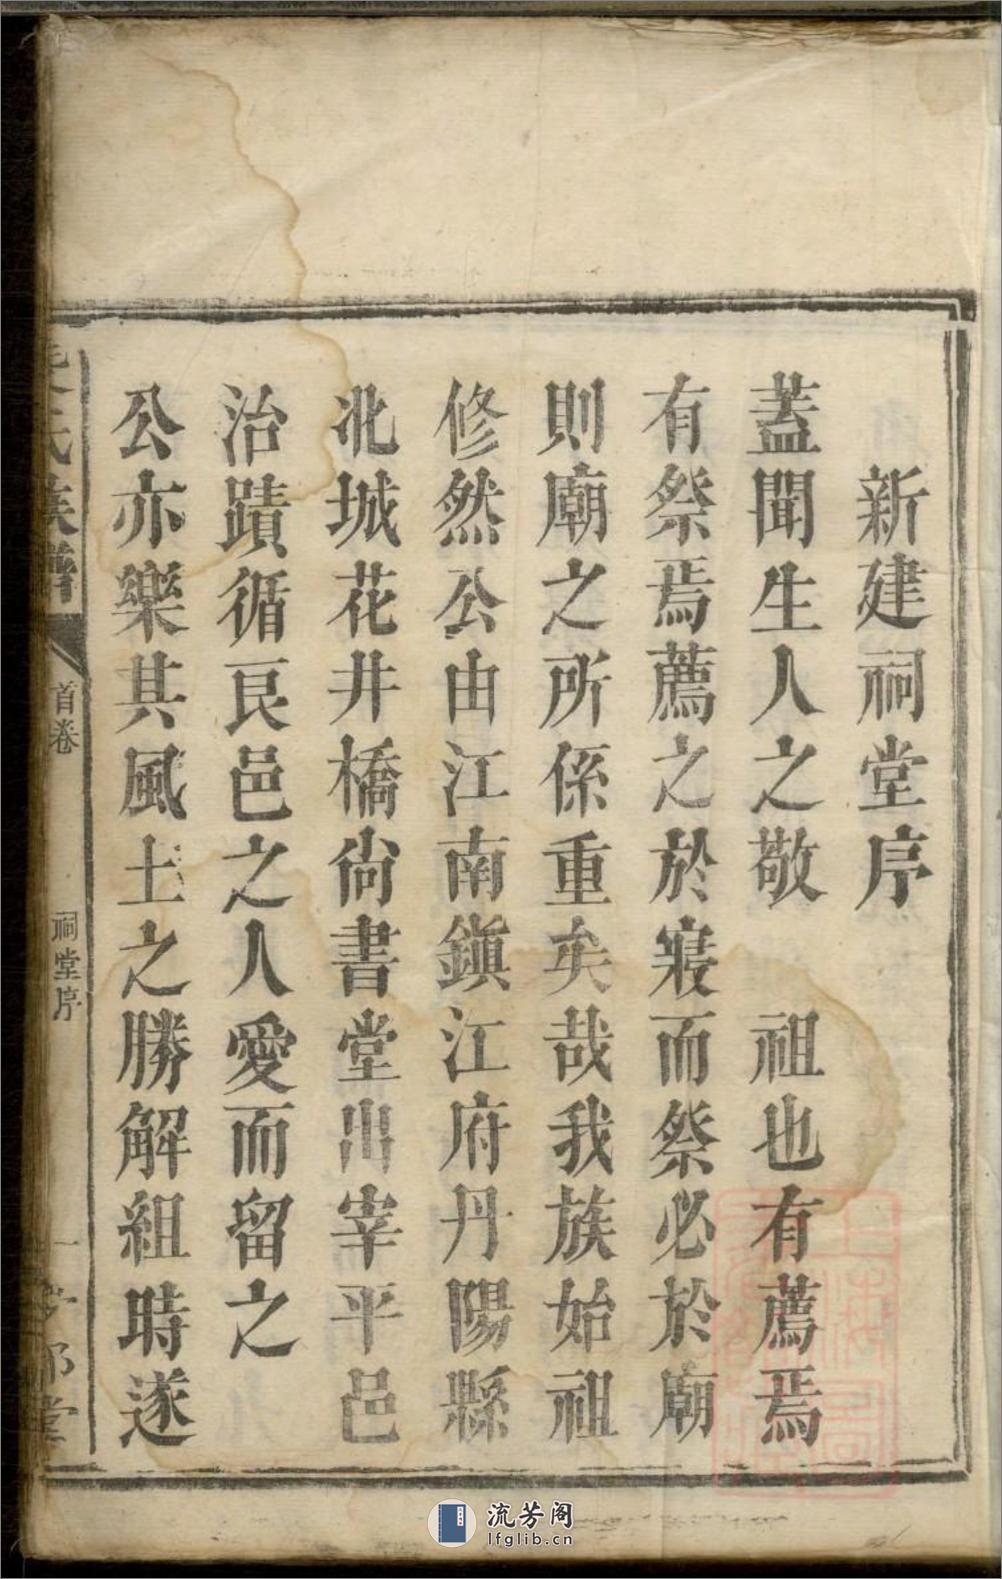 新建祠堂序
蓋聞生人之敬　祖也有薦焉
有祭焉薦之於寢而祭必於廟
則廟之所係重矣哉我族始祖
修然公由江南鎭江府丹陽縣
北城花井橋尙書堂出宰平邑
治蹟循良邑之人愛而留之
公亦樂其風土之勝解組時遂
氏族譜
首卷
祠堂序
一
堂
流芳阁
lfglib.cn